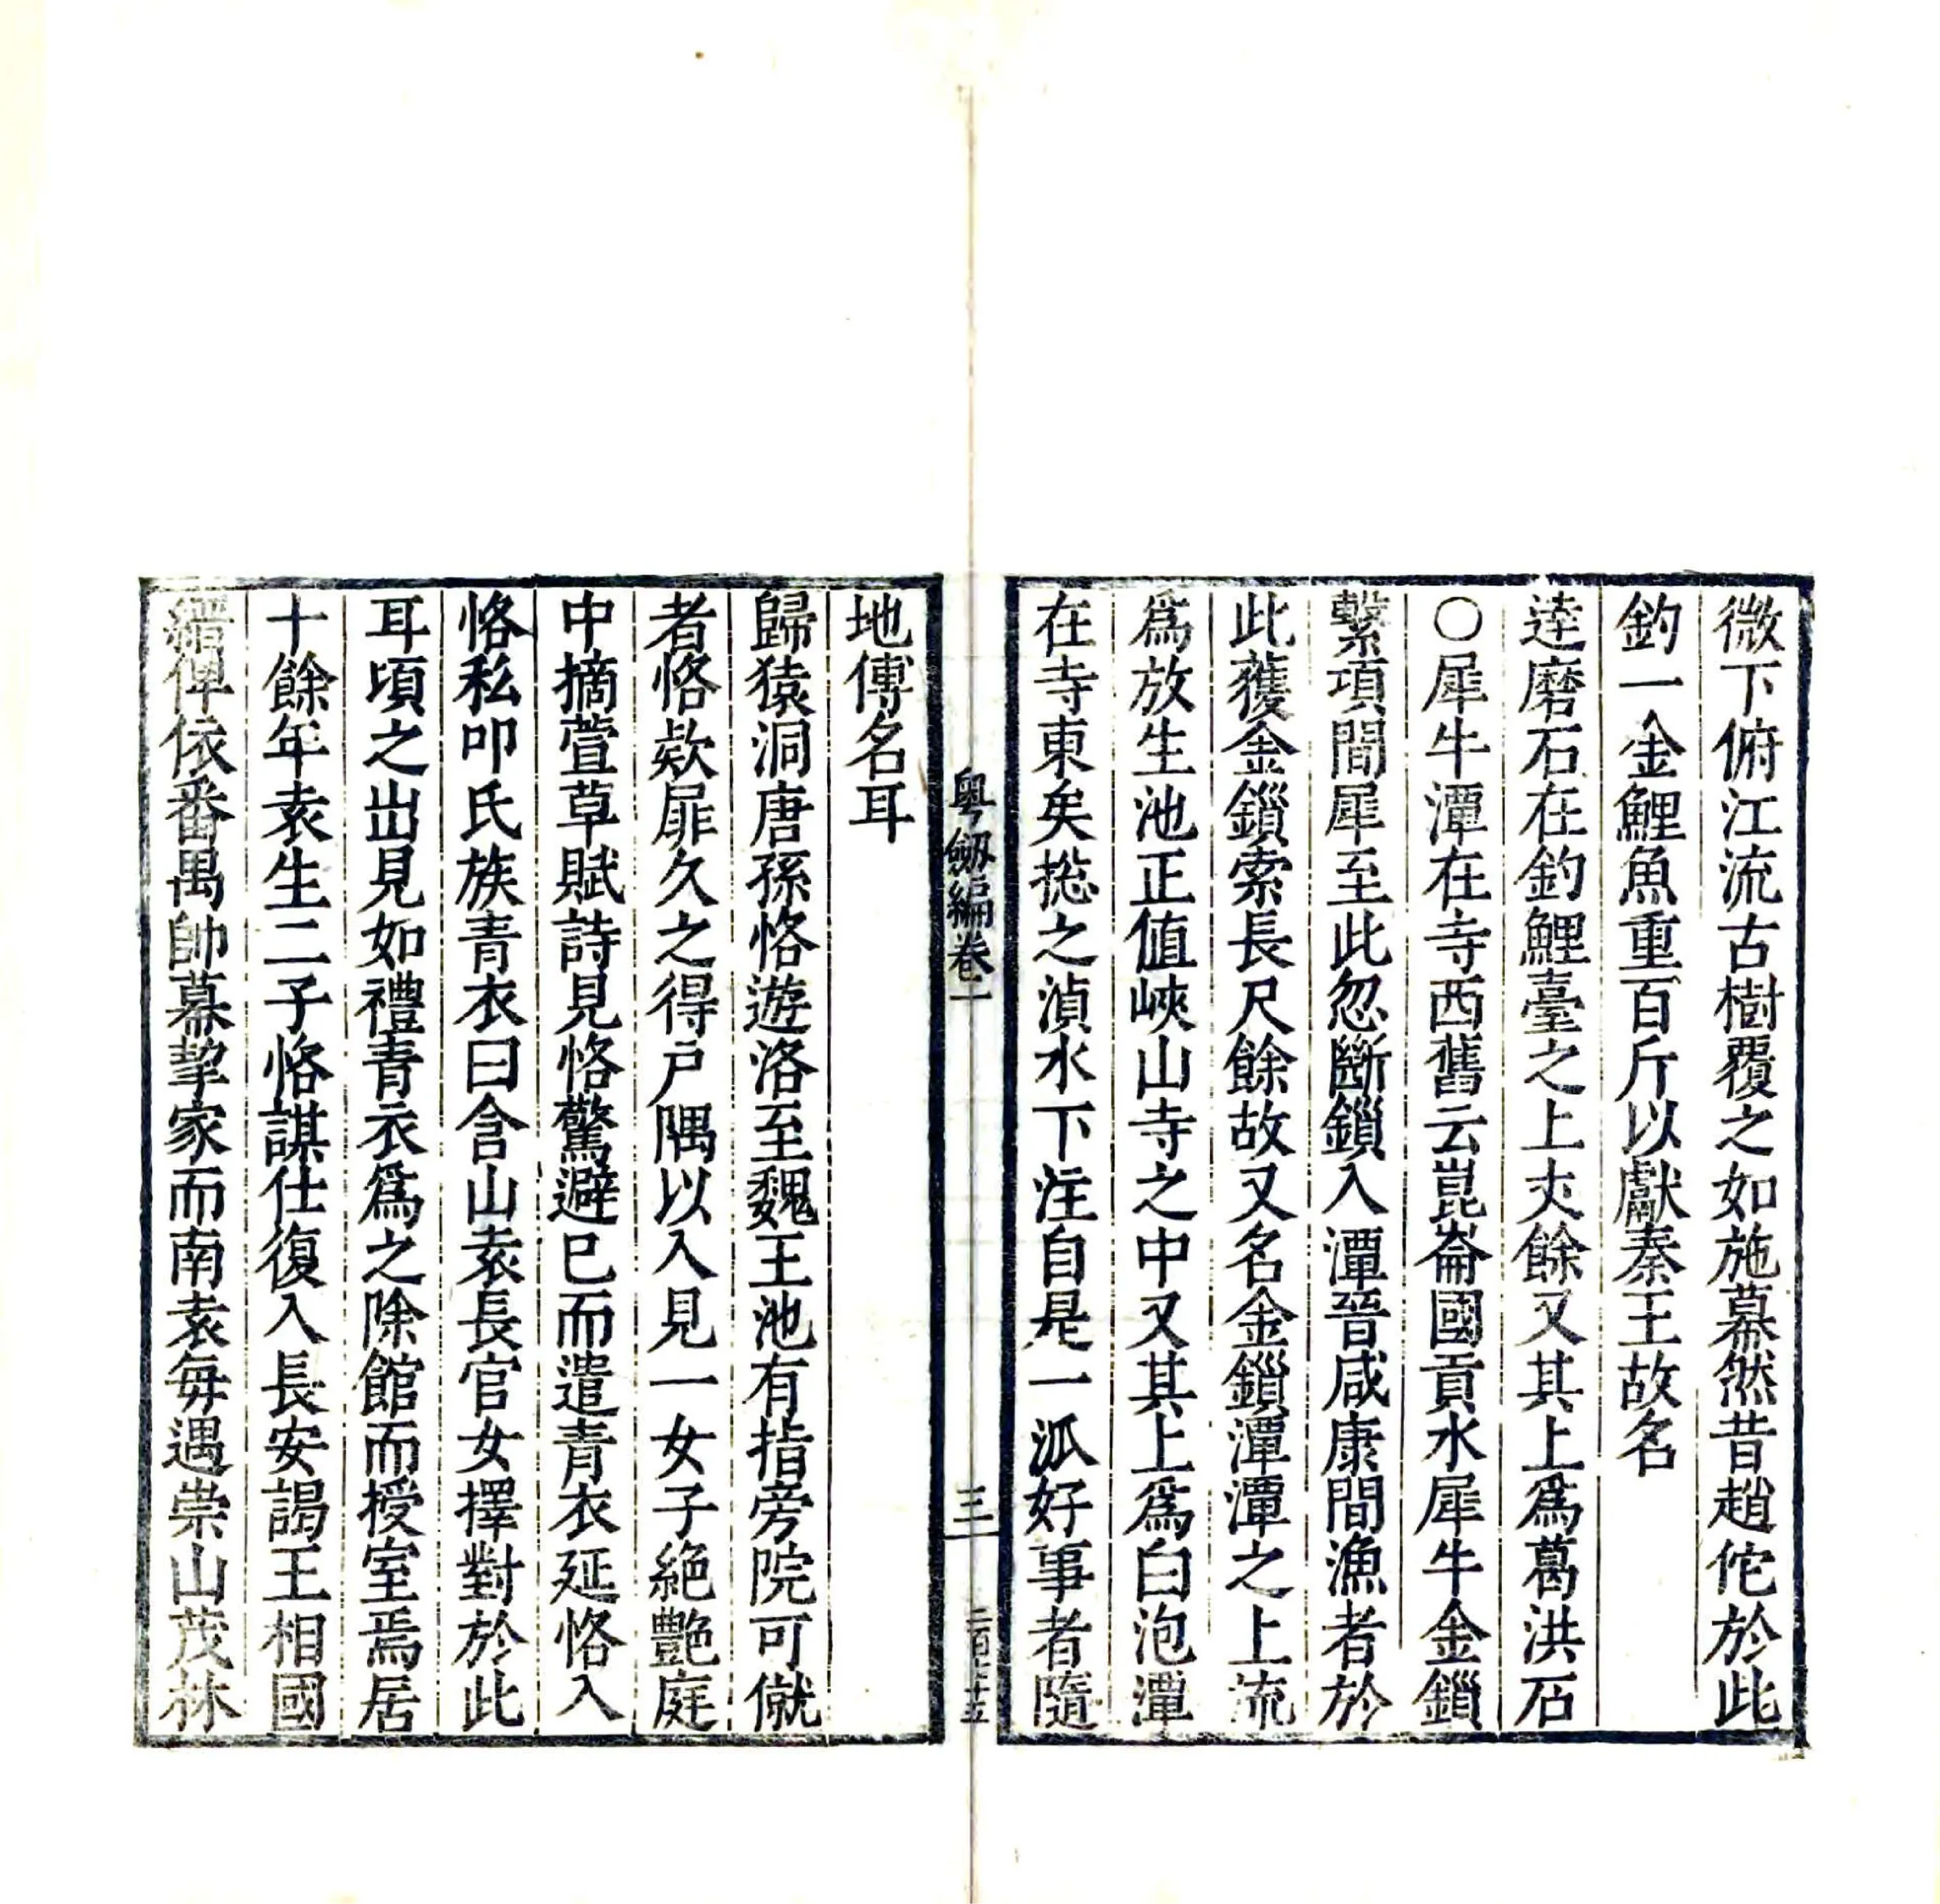 微下俯江流古樹覆之如施幕然昔趙佗於此
釣一金鯉魚重百斤以獻秦王故名
達磨石在釣鯉臺之上丈餘又其上爲葛洪石
〇犀牛潭在寺西舊云崑崙國貢水犀牛金鎖
繫項間犀至此忽斷鎖入潭晉咸康間漁者於
此獲金鎖索長尺餘故又名金鎖潭潭之上流
爲放生池正值峽山寺之中又其上爲白泡潭
在寺東矣揔之湞水下注自是一派好事者隨
粵劒編卷一
三
地傳名耳
歸猿洞唐孫恪遊洛至魏王池有指旁院可僦
者恪欵扉久之得戶隅以入見一女子絶艷庭
中摘萱草賦詩見恪驚避已而遣青衣延恪入
恪私叩氏族青衣曰含山袁長官女擇對於此
耳頃之出見如禮青衣爲之除館而授室焉居
十餘年袁生二子恪謀仕復入長安謁王相國
縉俾依番禺帥幕挈家而南袁每遇崇山茂林